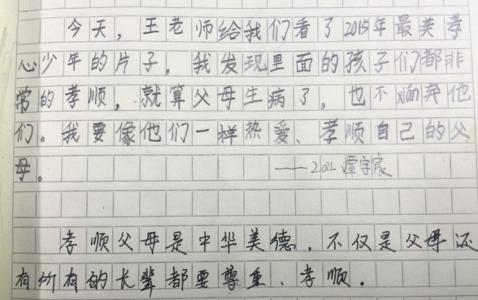 今天，王老师给我们看了2015年最美孝
心少年的片子，我发现里面的孩子们都非
常的孝顺，就算父母生病了，也不xián弃他
们。我要像他们一样热爱、孝顺自己的父
母。
——202 谭宇宸
孝顺父母是中华美德，不仅是父母还
有所有的长辈都要尊重、孝顺.